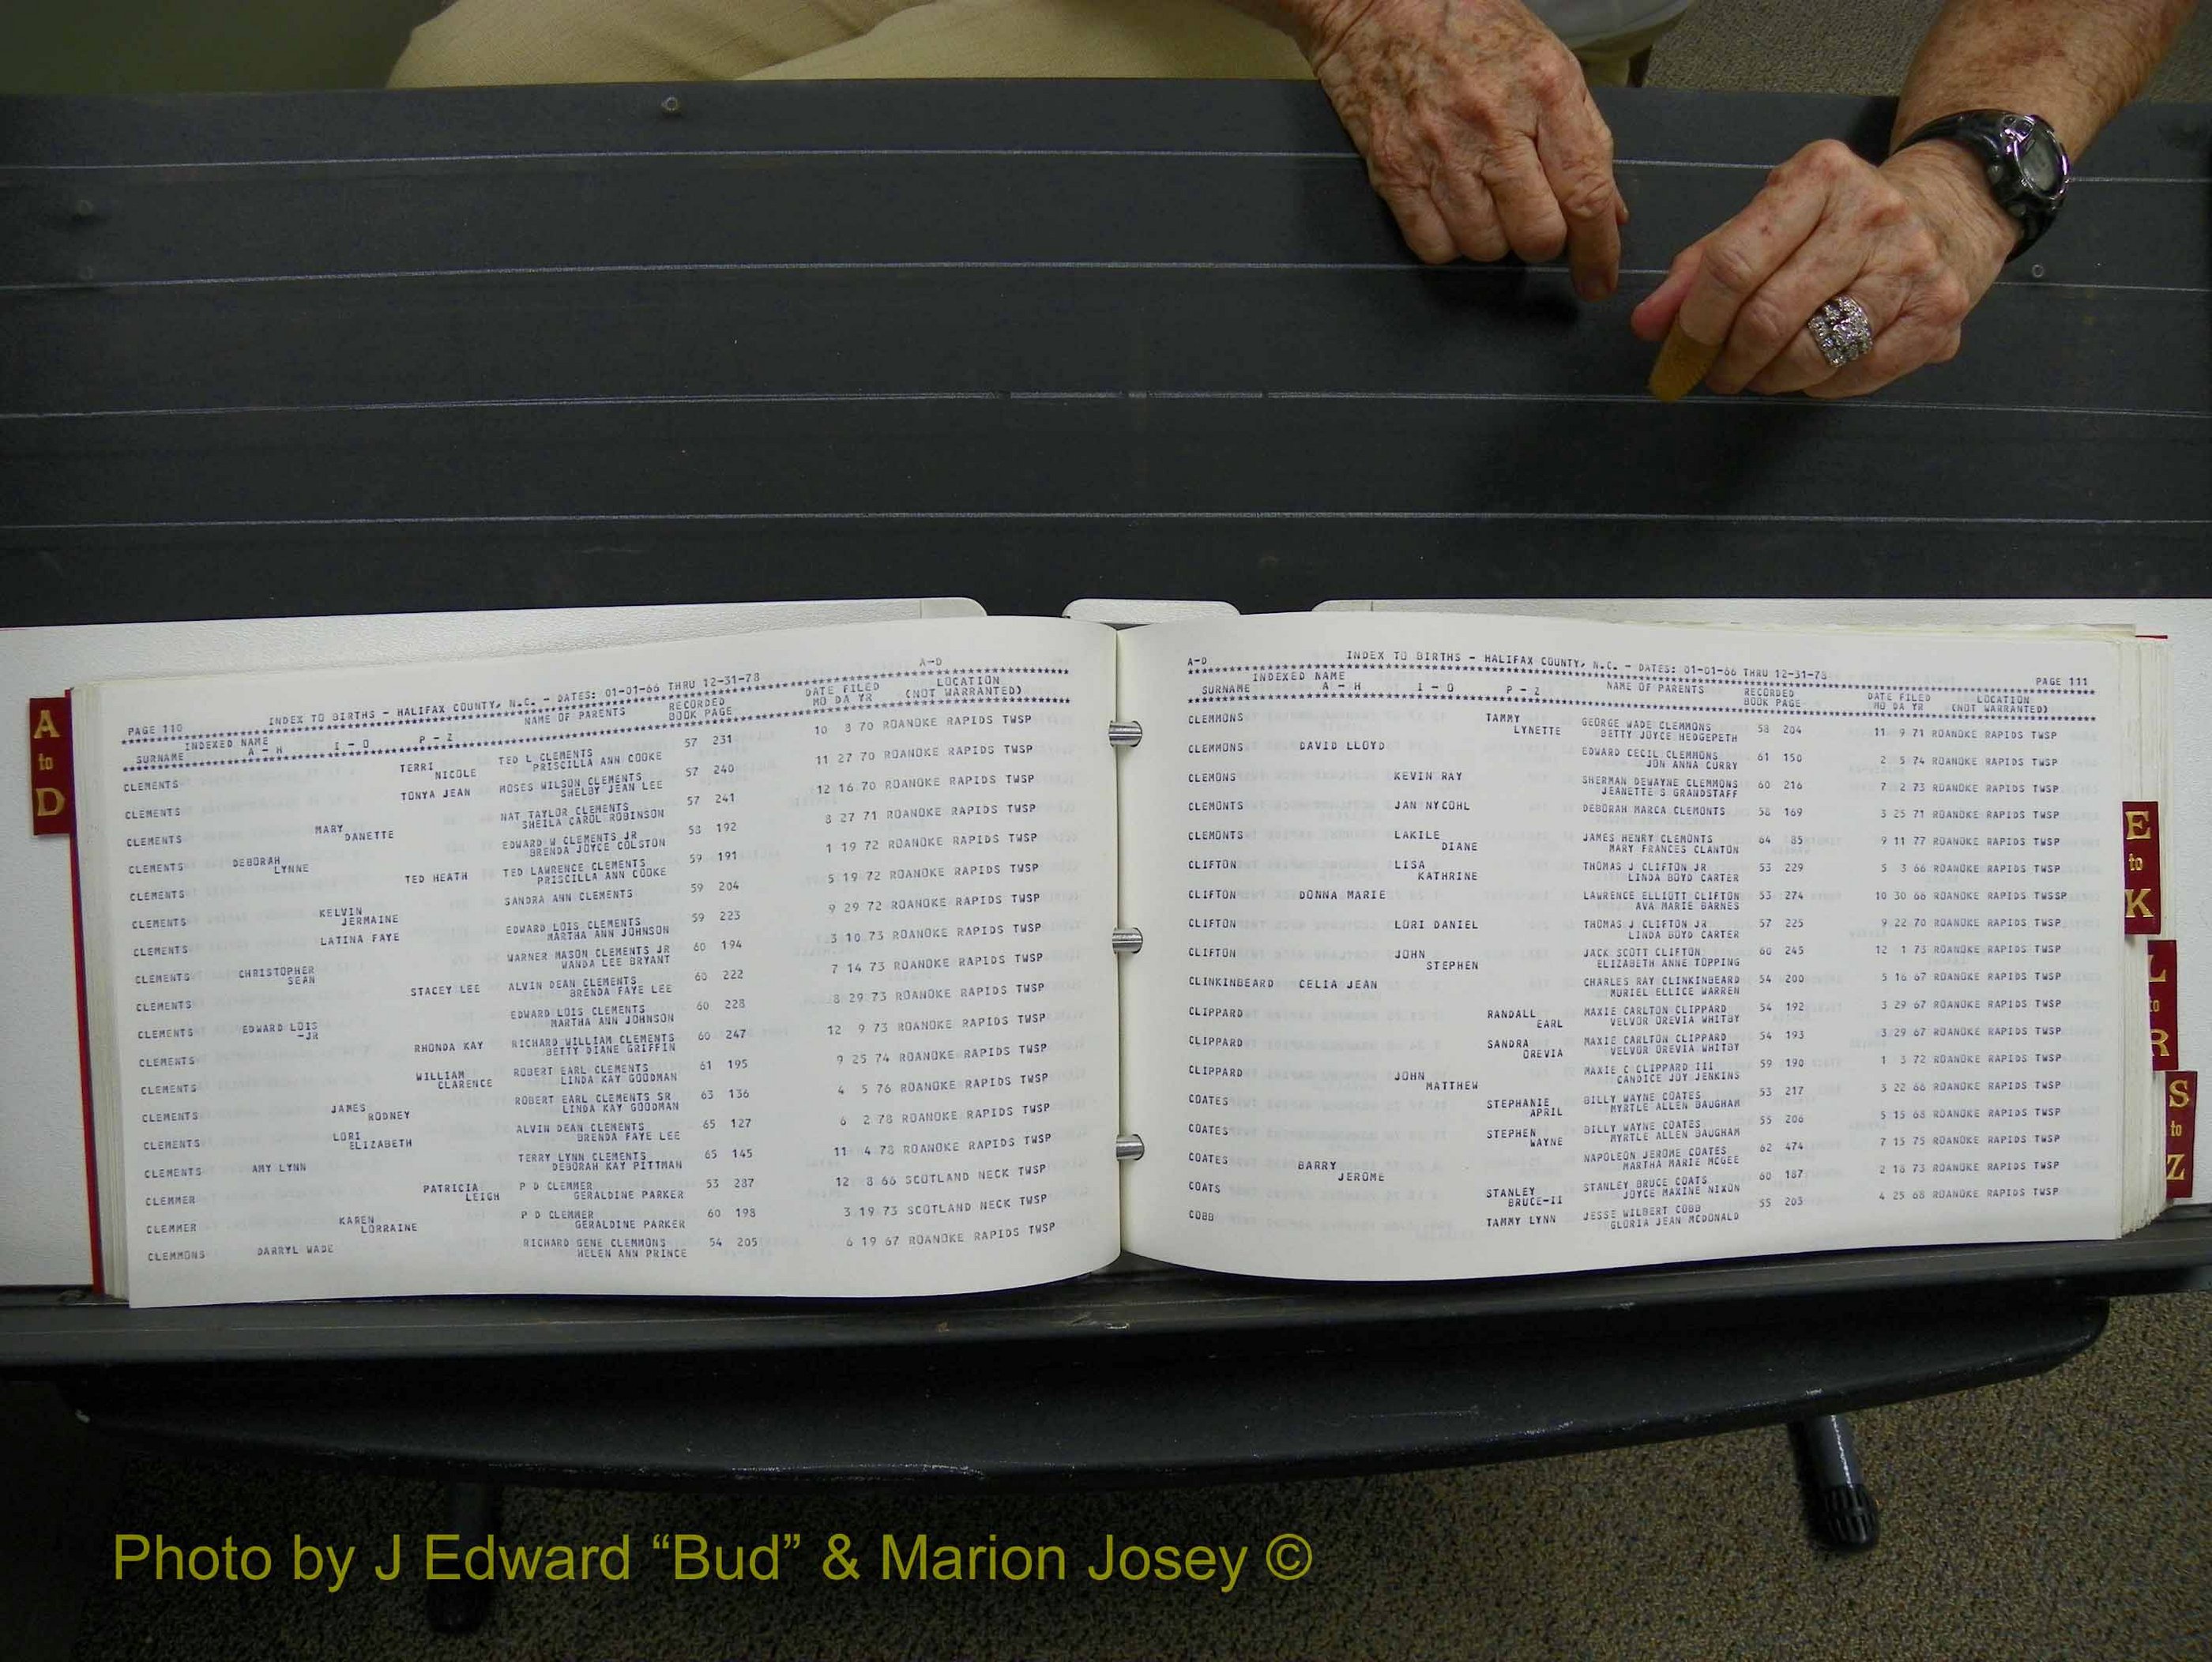 PAGE 110 INDEX TO BIRTHS - HALIFAX COUNTY, N.C. - DATES: 01-01-66 THRU 12-31-78 A-D
SURNAME INDEXED NAME A - H I - O P - Z NAME OF PARENTS RECORDED BOOK PAGE DATE FILED MO DA YR LOCATION (NOT WARRANTED)
CLEMENTS TERRI NICOLE TED L CLEMENTS PRISCILLA ANN COOKE 57 231 10 8 70 ROANOKE RAPIDS TWSP
CLEMENTS TONYA JEAN MOSES WILSON CLEMENTS SHELBY JEAN LEE 57 240 11 27 70 ROANOKE RAPIDS TWSP
CLEMENTS MARY DANETTE NAT TAYLOR CLEMENTS SHEILA CAROL ROBINSON 57 241 12 16 70 ROANOKE RAPIDS TWSP
CLEMENTS DEBORAH LYNNE EDWARD W CLEMENTS JR BRENDA JOYCE COLSTON 58 192 8 27 71 ROANOKE RAPIDS TWSP
CLEMENTS TED HEATH TED LAWRENCE CLEMENTS PRISCILLA ANN COOKE 59 191 1 19 72 ROANOKE RAPIDS TWSP
CLEMENTS KELVIN JERMAINE SANDRA ANN CLEMENTS 59 204 5 19 72 ROANOKE RAPIDS TWSP
CLEMENTS LATINA FAYE EDWARD LOIS CLEMENTS MARTHA ANN JOHNSON 59 223 9 29 72 ROANOKE RAPIDS TWSP
CLEMENTS CHRISTOPHER SEAN WARNER MASON CLEMENTS JR WANDA LEE BRYANT 60 194 3 10 73 ROANOKE RAPIDS TWSP
CLEMENTS STACEY LEE ALVIN DEAN CLEMENTS BRENDA FAYE LEE 60 222 7 14 73 ROANOKE RAPIDS TWSP
CLEMENTS EDWARD LOIS -JR EDWARD LOIS CLEMENTS MARTHA ANN JOHNSON 60 228 8 29 73 ROANOKE RAPIDS TWSP
CLEMENTS RHONDA KAY RICHARD WILLIAM CLEMENTS BETTY DIANE GRIFFIN 60 247 12 9 73 ROANOKE RAPIDS TWSP
CLEMENTS WILLIAM CLARENCE ROBERT EARL CLEMENTS LINDA KAY GOODMAN 61 195 9 25 74 ROANOKE RAPIDS TWSP
CLEMENTS JAMES RODNEY ROBERT EARL CLEMENTS SR LINDA KAY GOODMAN 63 136 4 5 76 ROANOKE RAPIDS TWSP
CLEMENTS LORI ELIZABETH ALVIN DEAN CLEMENTS BRENDA FAYE LEE 65 127 6 2 78 ROANOKE RAPIDS TWSP
CLEMENTS AMY LYNN TERRY LYNN CLEMENTS DEBORAH KAY PITTMAN 65 145 11 4 78 ROANOKE RAPIDS TWSP
CLEMMER PATRICIA LEIGH P D CLEMMER GERALDINE PARKER 53 287 12 8 66 SCOTLAND NECK TWSP
CLEMMER KAREN LORRAINE P D CLEMMER GERALDINE PARKER 60 198 3 19 73 SCOTLAND NECK TWSP
CLEMMONS DARRYL WADE RICHARD GENE CLEMMONS HELEN ANN PRINCE 54 205 6 19 67 ROANOKE RAPIDS TWSP
A-D INDEX TO BIRTHS - HALIFAX COUNTY, N.C. - DATES: 01-01-66 THRU 12-31-78 PAGE 111
SURNAME INDEXED NAME A - H I - O P - Z NAME OF PARENTS RECORDED BOOK PAGE DATE FILED MO DA YR LOCATION (NOT WARRANTED)
CLEMMONS TAMMY LYNETTE GEORGE WADE CLEMMONS BETTY JOYCE HEDGEPETH 58 204 11 9 71 ROANOKE RAPIDS TWSP
CLEMMONS DAVID LLOYD EDWARD CECIL CLEMMONS JON ANNA CURRY 61 150 2 5 74 ROANOKE RAPIDS TWSP
CLEMONS KEVIN RAY SHERMAN DEWAYNE CLEMMONS JEANETTE S GRANDSTAFF 60 216 7 2 73 ROANOKE RAPIDS TWSP
CLEMONTS JAN NYCOHL DEBORAH MARCA CLEMONTS 58 169 3 25 71 ROANOKE RAPIDS TWSP
CLEMONTS LAKILE DIANE JAMES HENRY CLEMONTS MARY FRANCES CLANTON 64 85 9 11 77 ROANOKE RAPIDS TWSP
CLIFTON LISA KATHRINE THOMAS J CLIFTON JR LINDA BOYD CARTER 53 229 5 3 66 ROANOKE RAPIDS TWSP
CLIFTON DONNA MARIE LAWRENCE ELLIOTT CLIFTON AVA MARIE BARNES 53 274 10 30 66 ROANOKE RAPIDS TWSSP
CLIFTON LORI DANIEL THOMAS J CLIFTON JR LINDA BOYD CARTER 57 225 9 22 70 ROANOKE RAPIDS TWSP
CLIFTON JOHN STEPHEN JACK SCOTT CLIFTON ELIZABETH ANNE TOPPING 60 245 12 1 73 ROANOKE RAPIDS TWSP
CLINKINBEARD CELIA JEAN CHARLES RAY CLINKINBEARD MURIEL ELLICE WARREN 54 200 5 16 67 ROANOKE RAPIDS TWSP
CLIPPARD RANDALL EARL MAXIE CARLTON CLIPPARD VELVOR OREVIA WHITBY 54 192 3 29 67 ROANOKE RAPIDS TWSP
CLIPPARD SANDRA OREVIA MAXIE CARLTON CLIPPARD VELVOR OREVIA WHITBY 54 193 3 29 67 ROANOKE RAPIDS TWSP
CLIPPARD JOHN MATTHEW MAXIE C CLIPPARD III CANDICE JOY JENKINS 59 190 1 3 72 ROANOKE RAPIDS TWSP
COATES STEPHANIE APRIL BILLY WAYNE COATES MYRTLE ALLEN BAUGHAM 53 217 3 22 66 ROANOKE RAPIDS TWSP
COATES STEPHEN WAYNE BILLY WAYNE COATES MYRTLE ALLEN BAUGHAM 55 206 5 15 68 ROANOKE RAPIDS TWSP
COATES BARRY JEROME NAPOLEON JEROME COATES MARTHA MARIE MCGEE 62 474 7 15 75 ROANOKE RAPIDS TWSP
COATS STANLEY BRUCE-II STANLEY BRUCE COATS JOYCE MAXINE NIXON 60 187 2 18 73 ROANOKE RAPIDS TWSP
COBB TAMMY LYNN JESSE WILBERT COBB GLORIA JEAN MCDONALD 55 203 4 25 68 ROANOKE RAPIDS TWSP
A to D
E to K
L to R
S to Z
Photo by J Edward “Bud” & Marion Josey ©